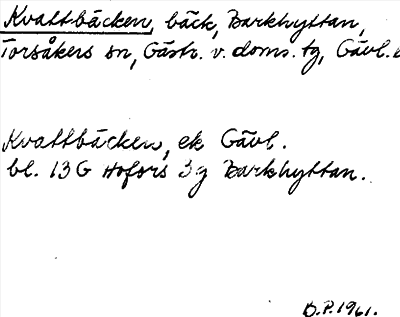 Kvattbäcken, bäck, Barkhyttan,
Torsåkers sn, Gästr. v. doms. tg, Gävl.
Kvattbäcken, ek Gävl.
bl. 13G Hofors 3g Barkhyttan.
B.P. 1961.